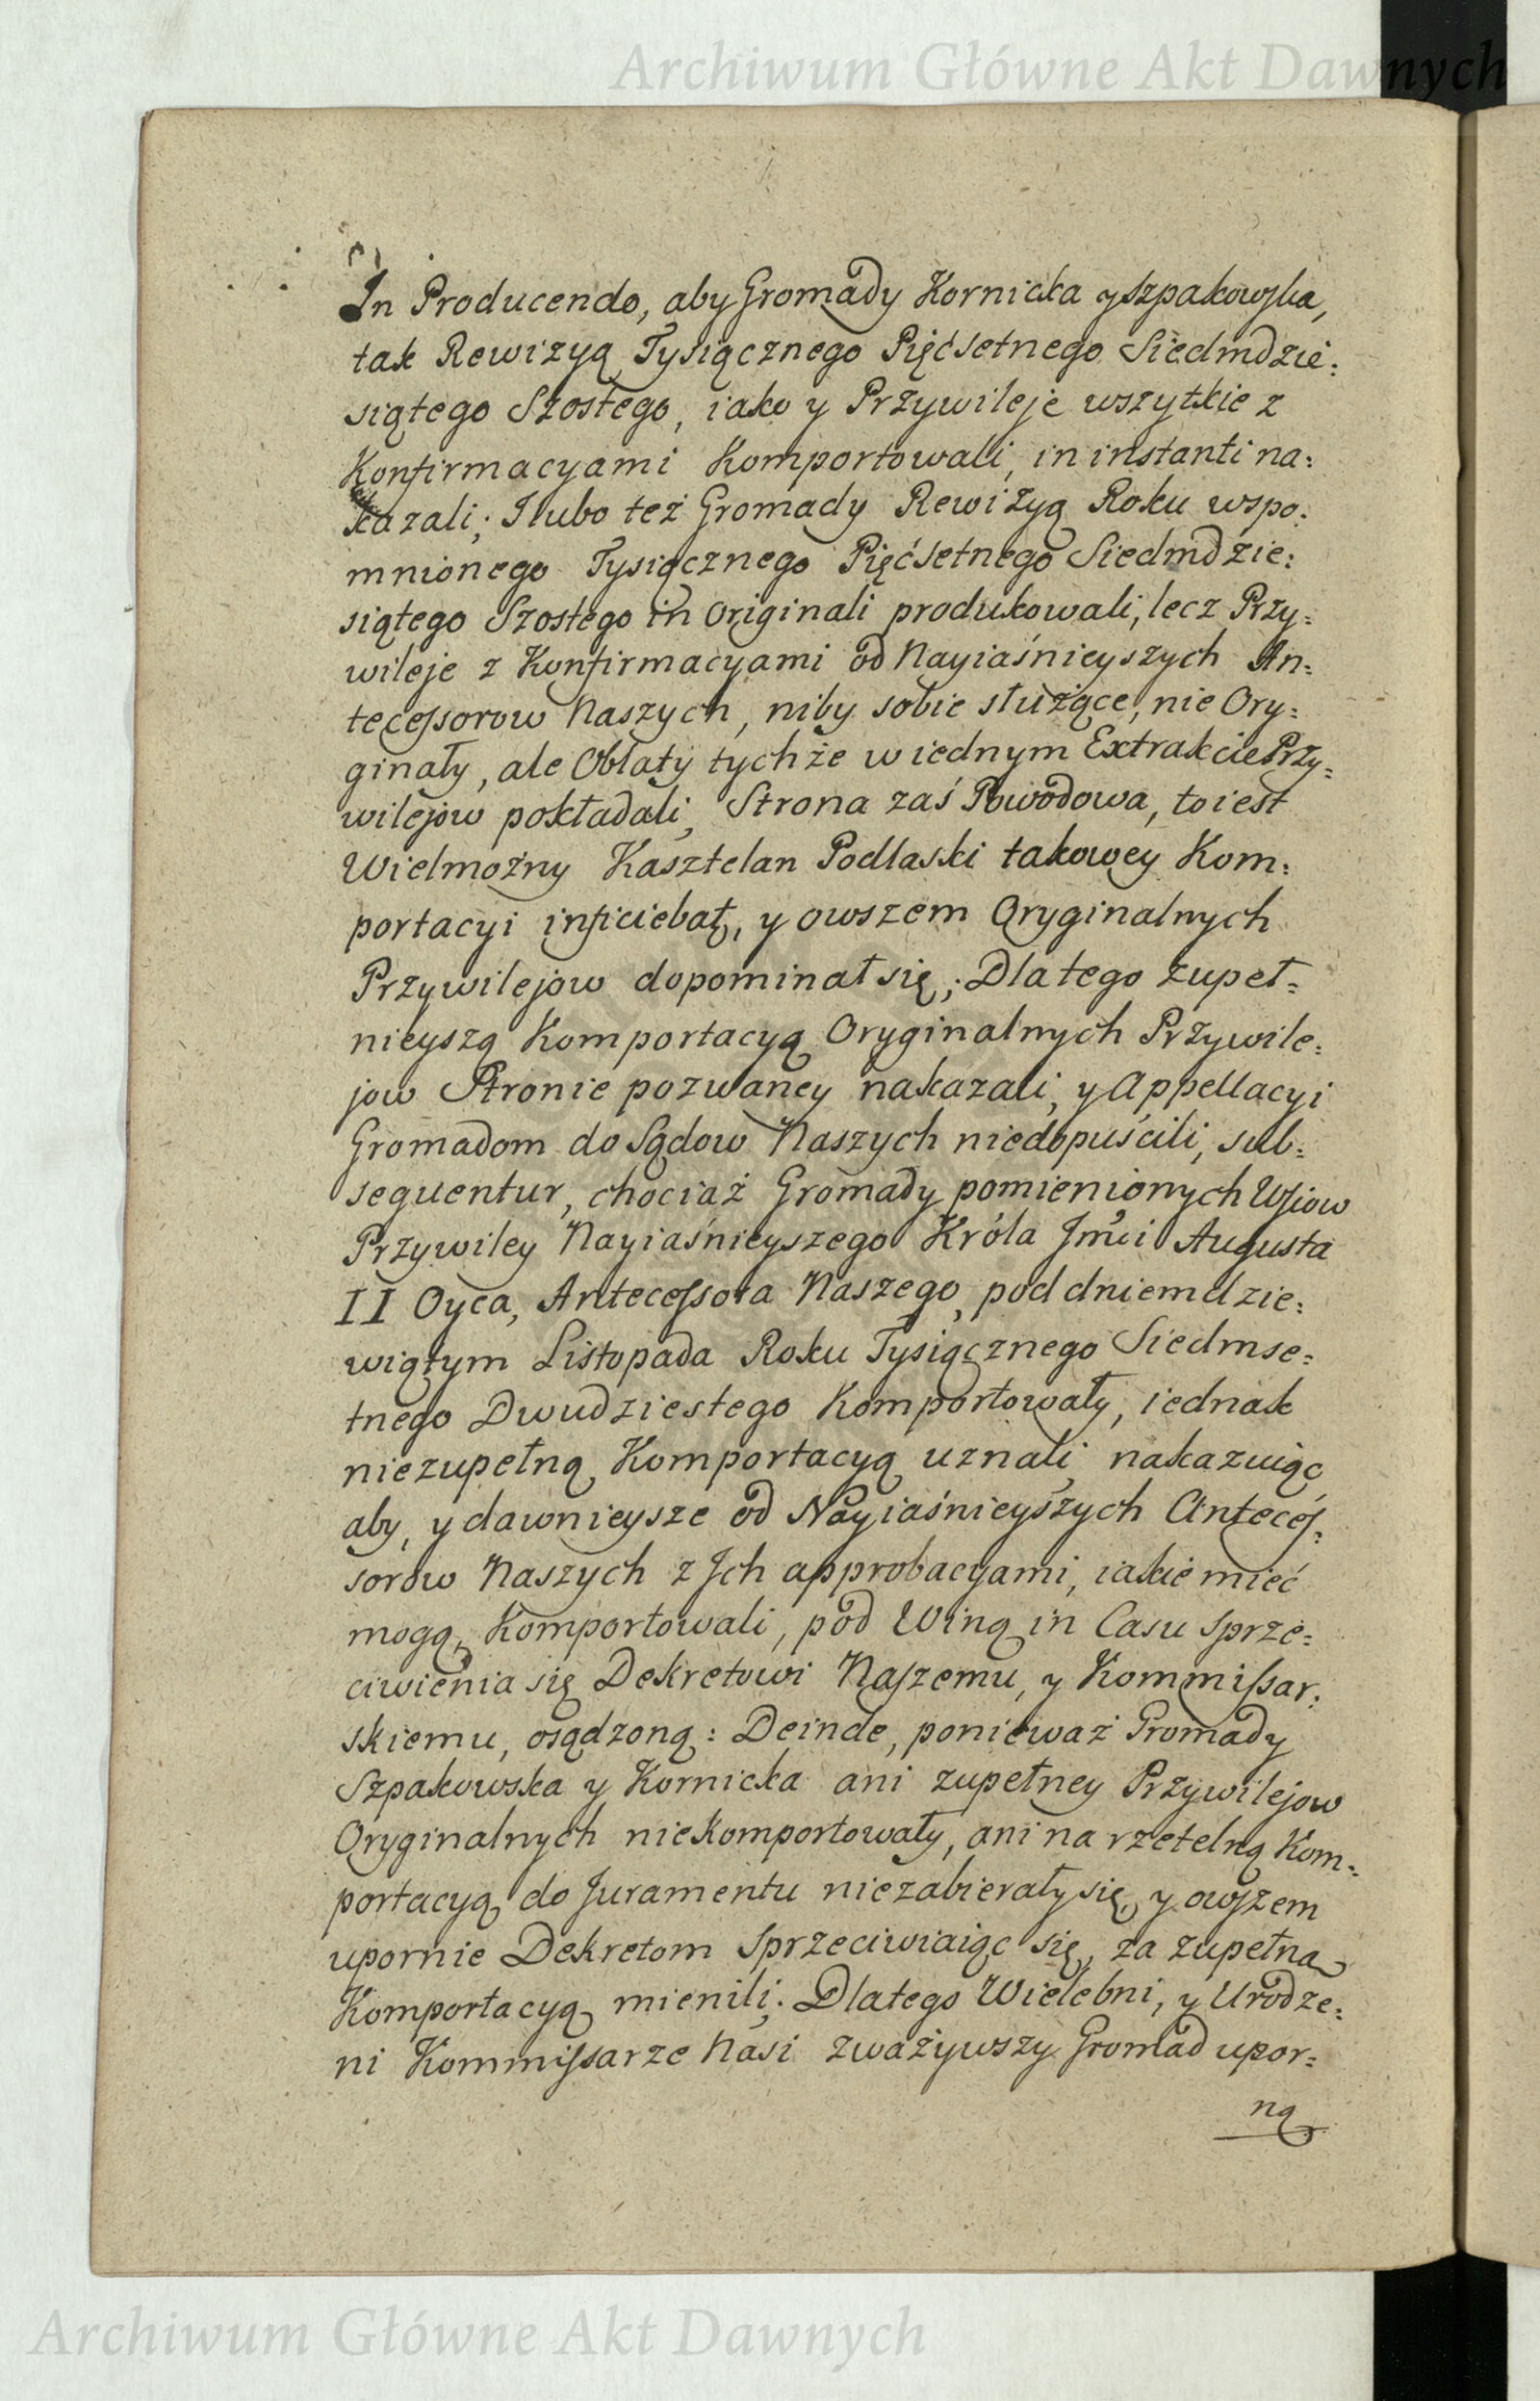 Archiwum Główne Akt Dawnych
In Producendo, aby Gromady Kornicka y Szpakowska,
tak Rewizyą Tysiącznego Pięćsetnego Siedmdzie:
siątego Szostego, iako y Przywileje wszytkie z
Konfirmacyami Komportowali, in instanti na:
kazali; I lubo też Gromady Rewizyą Roku wspo:
mnionego Tysiącznego Pięćsetnego Siedmdzie:
siątego Szostego in Originali produkowali, lecz Przy:
wileje z Konfirmacyami od Nayiaśnieyszych An:
tecessorow Naszych, niby sobie służące, nie Ory:
ginały, ale Oblaty tychże w iednym Extrakcie Przy:
wilejow pokładali, Strona zaś Powodowa, to iest
Wielmożny Kasztelan Podlaski takowey Kom:
portacyi inficiebat, y owszem Oryginalnych
Przywilejow dopominał się; Dlatego zupeł=
nieyszą Komportacyą Oryginalnych Przywile:
jow Stronie pozwaney nakazali, y Appellacyi
Gromadom do Sądow Naszych niedopuścili, sub:
sequentur, chociaż Gromady pomienionych Wsiow
Przywiley Nayiaśnieyszego Króla Jmci Augusta
II Oyca, Antecessora Naszego, pod dniem dzie:
wiątym Listopada Roku Tysiącznego Siedmse=
tnego Dwudziestego Komportowały, iednak
niezupełną Komportacyą uznali, nakazuiąc
aby, y dawnieysze od Nayiaśnieyszych Anteces:
sorow Naszych z Ich approbacyami, iakie mieć
mogą, Komportowali, pod Winą in Casu sprze=
ciwienia się Dekretowi Naszemu, y Kommissar:
skiemu, osądzoną: Deinde, ponieważ Gromady
Szpakowska y Kornicka ani zupełney Przywilejow
Oryginalnych niekomportowały, ani na rzetelną Kom=
portacyą do Juramentu niezabierały się, y owszem
upornie Dekretom sprzeciwiaiąc się, za zupełną
Komportacyą mienili; Dlatego Wielebni, y Urodze:
ni Kommissarze Nasi zważywszy Gromad upor=
ną
Archiwum Główne Akt Dawnych